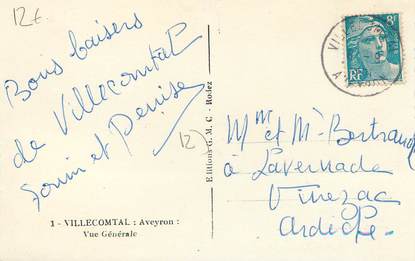 12€
Bons baisers
de Villecomtal
et Denise
12
1 - VILLECOMTAL : Aveyron :
Vue Générale
Editions G. M. C. - Rodez
8F
RF
Mme et Mr Bertrand
à Lavernade
Vinezac
Ardèche.